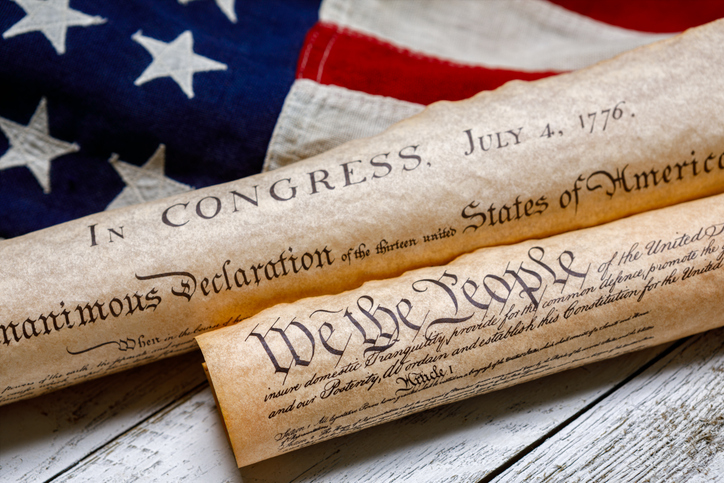 In CONGRESS, July 4, 1776.
nanimous Declaration of the thirteen united States of America
When in the Course of
We the People of the United
insure domestic Tranquility, provide for the common defence, promote the
and our Posterity, do ordain and establish this Constitution for the United
Article I